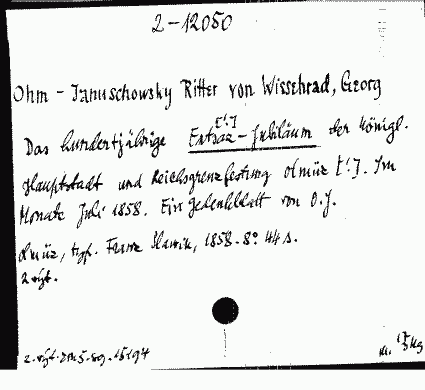 2-12050
Ohm - Januschowsky Ritter von Wissehrad, Georg
[!]
Das hundertjährige Entsaz-Jubiläum der königl.
Hauptstadt und Reichsgrenzfestung Olmüz [!]. Im
Monate Juli 1858. Ein Gedenkblatt von O. J.
Olmüz, typ. Franz Slawik, 1858. 8° 44 s.
2 výt.
2. výt.